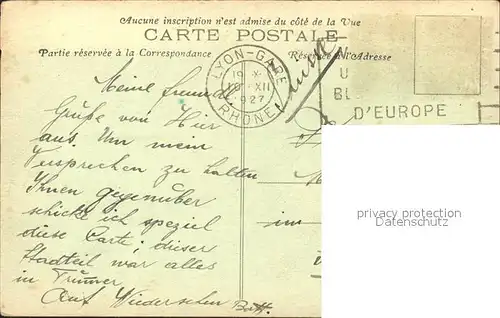 Aucune inscription n'est admise du côté de la Vue
CARTE POSTALE
Partie réservée à la Correspondance
Réservé à l'Adresse
LYON-GARE
19
XII
1927
RHONE
U
BL
D'EUROPE
Meine freunde
Grüße von Hier
aus. Um mein
Versprechen zu halten
Ihnen gegenüber
schicke ich speziel
diese Carte; dieser
Stadteil war alles
in Trümer
Auf Wiedersehen
im
privacy protection
Datenschutz